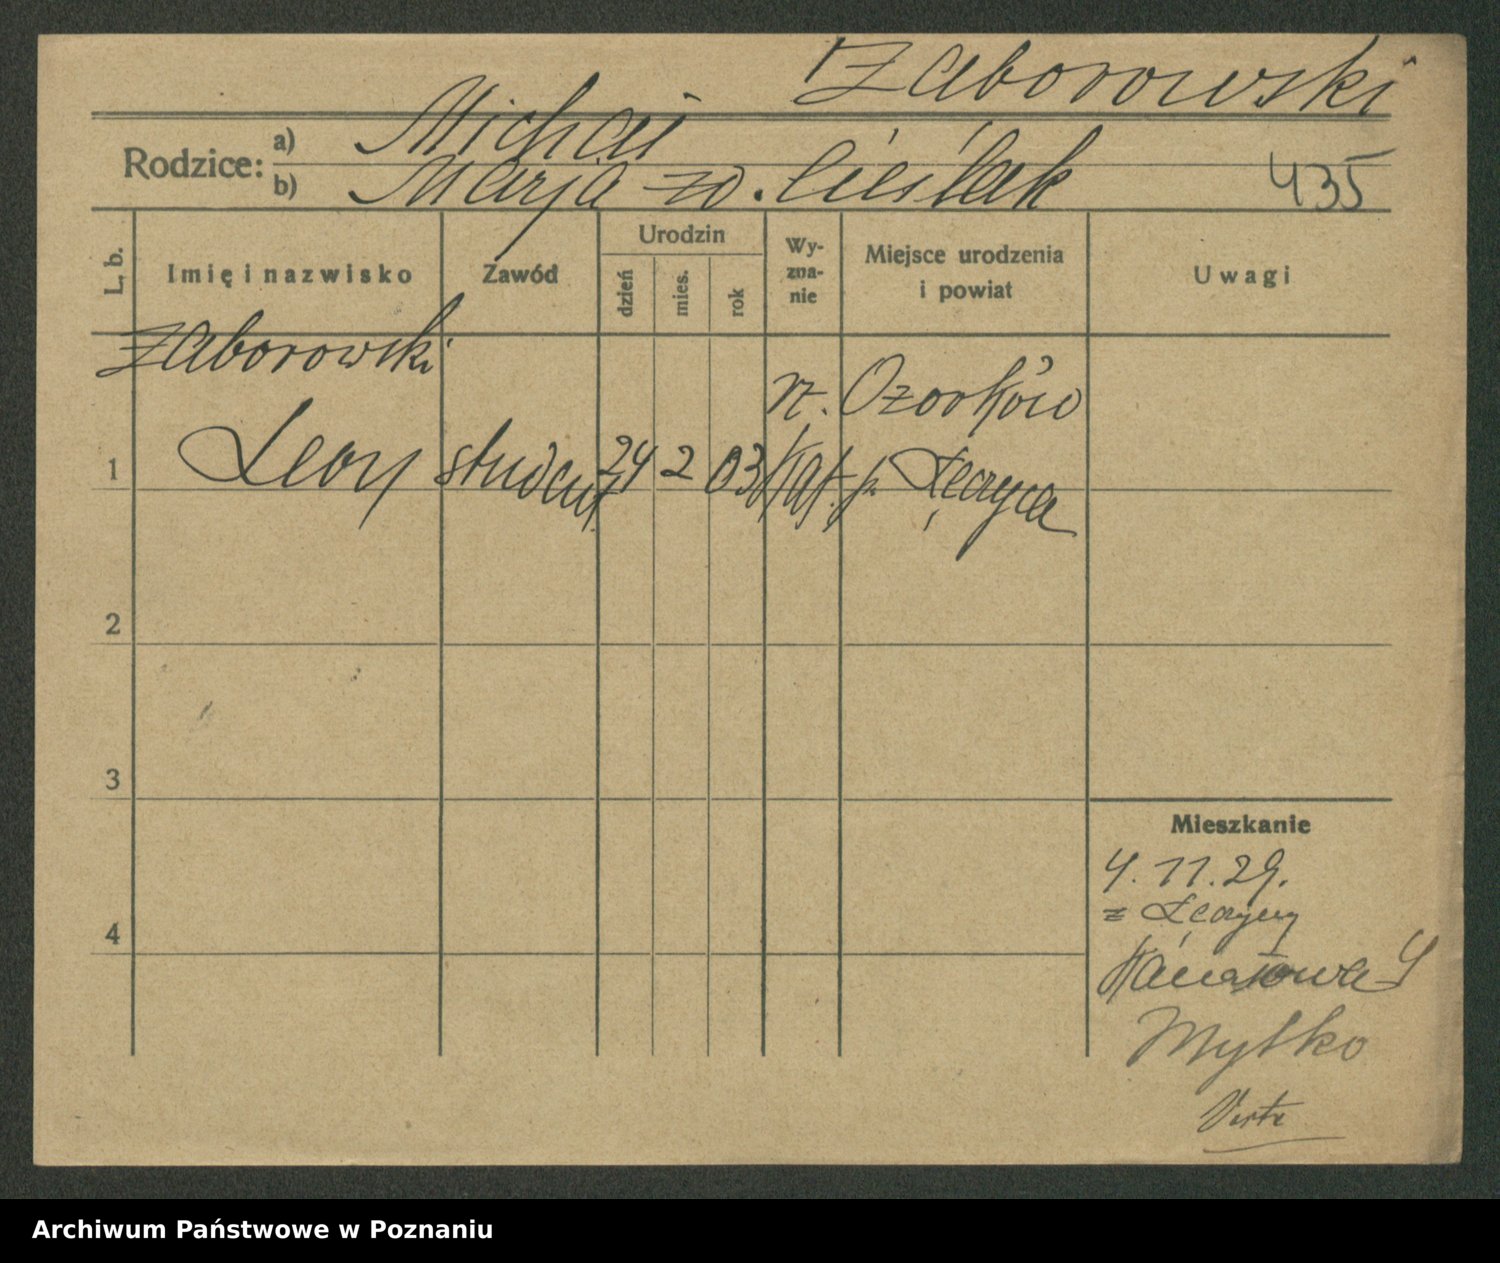 Zaborowski
Rodzice: a) Michał
b) Marja zd. Cieślak
435
L. b.
Imię i nazwisko
Zawód
Urodzin
dzień
mies.
rok
Wy-
zna-
nie
Miejsce urodzenia
i powiat
Uwagi
Zaborowski
1 Leon student 24 2 03 rz. Kat. Ozorków
p. Łęczyca
2
3
4
Mieszkanie
4.11.29.
z Łęczycy
4
Mytko
Verte
Archiwum Państwowe w Poznaniu